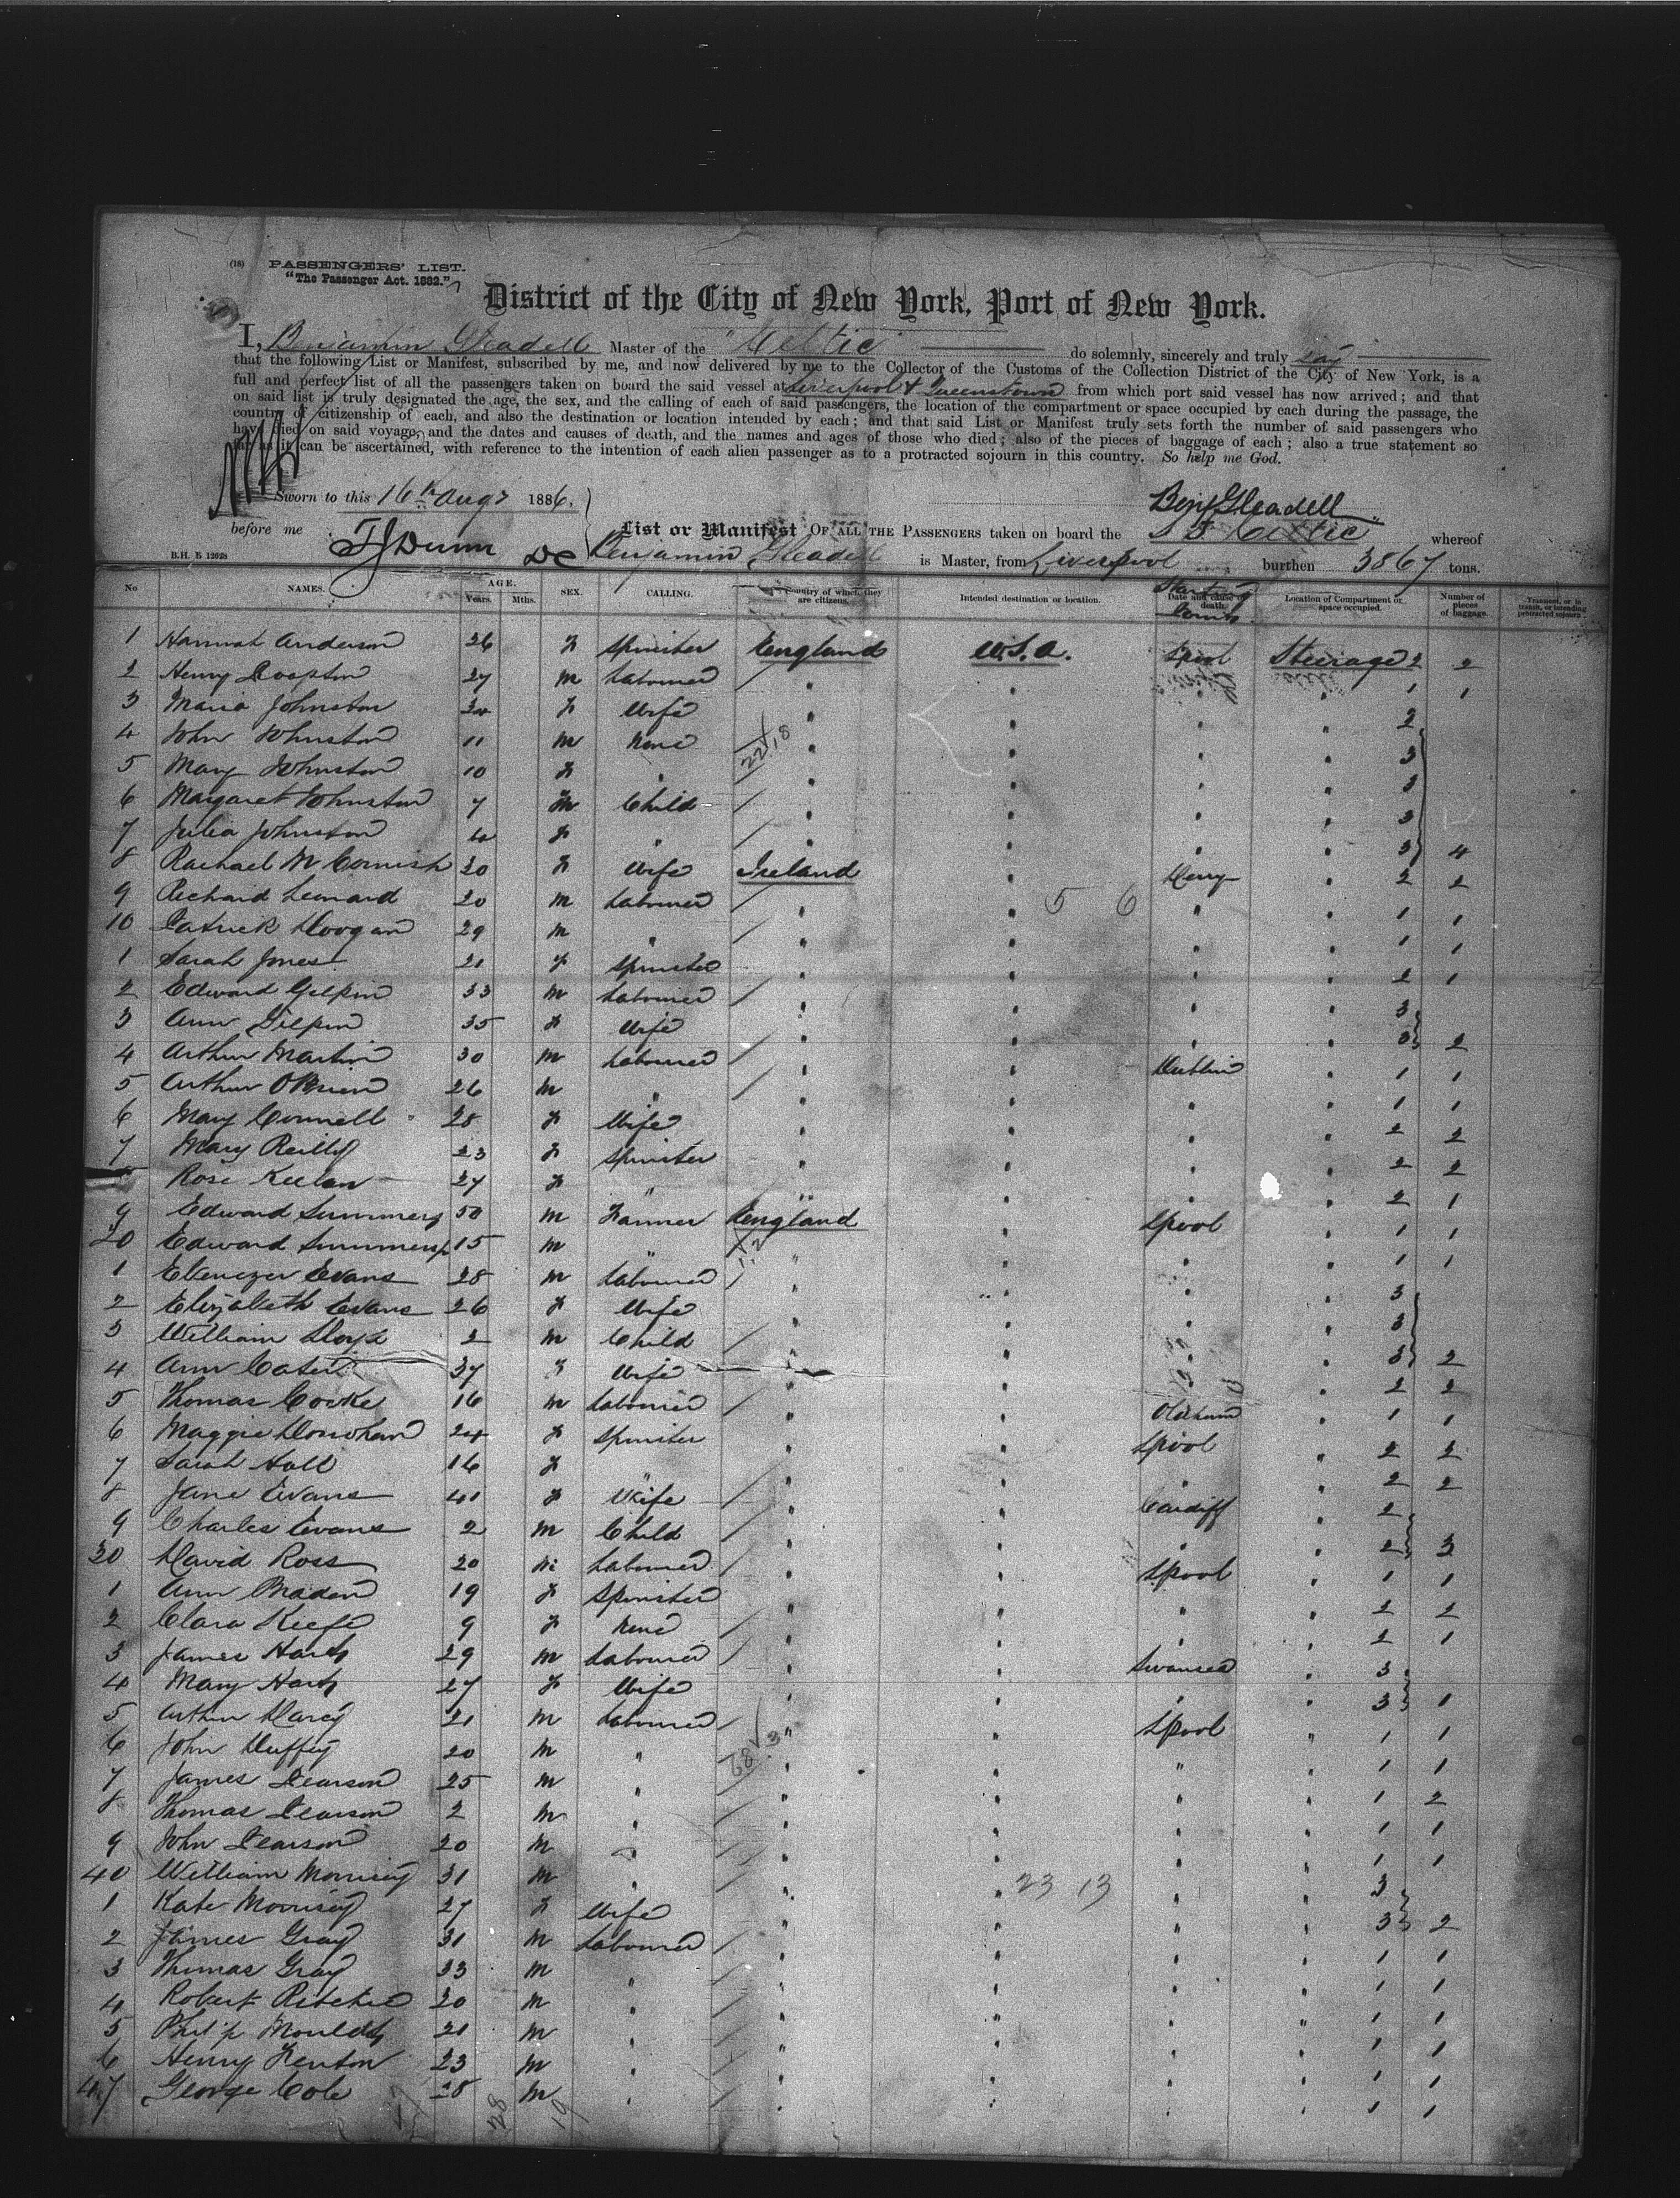 (18) PASSENGERS' LIST.
"The Passenger Act. 1882."
District of the City of New York, Port of New York.
I, Benjamin Gleadell Master of the "Celtic" do solemnly, sincerely and truly say
that the following List or Manifest, subscribed by me, and now delivered by me to the Collector of the Customs of the Collection District of the City of New York, is a
full and perfect list of all the passengers taken on board the said vessel at Liverpool & Queenstown from which port said vessel has now arrived; and that
on said list is truly designated the age, the sex, and the calling of each of said passengers, the location of the compartment or space occupied by each during the passage, the
country of citizenship of each, and also the destination or location intended by each; and that said List or Manifest truly sets forth the number of said passengers who
have died on said voyage, and the dates and causes of death, and the names and ages of those who died; also of the pieces of baggage of each; also a true statement so
far as it can be ascertained, with reference to the intention of each alien passenger as to a protracted sojourn in this country. So help me God.
Sworn to this 16th Augt 1886.
Benj Gleadell
before me TJ Dunn DC
List or Manifest OF ALL THE PASSENGERS taken on board the SS Celtic whereof
B.H. E 12628
Benjamin Gleadell is Master, from Liverpool burthen 3867 tons.
No NAMES. AGE. Years. Mths. SEX. CALLING. Country of which they are citizens. Intended destination or location. Date and cause of death. Location of Compartment or space occupied. Number of pieces of baggage. Transient, or in transit, or intending protracted sojourn
1 Hannah Anderson 26 F Spinster England U.S.A. Lpool Steerage 2 2
2 Henry 27 M Labourer " " " " 1 1
3 Maria Johnston F Wife " " " " 2
4 John Johnston 11 M None " " " " 3
5 Mary Johnston 10 F " " " " " 3
6 Margaret Johnston 7 Child " " " " 3
7 Julia Johnston 4 F " " " " " 3 4
8 Rachael McCornish 30 F Wife Ireland " Derry " 2 2
9 Richard Leonard 20 M Labourer " " " " 1 1
10 Patrick Doogan 29 M " " " " " 1 1
1 Sarah Jones 21 F Spinster " " " " 2 1
2 Edward Gilpin 33 M Labourer " " " " 3
3 Ann Gilpin 35 F Wife " " " " 3 2
4 Arthur Martin 30 M Labourer " " Dublin " 1 1
5 Arthur OBrien 26 M " " " " " 1 1
6 Mary Connell 28 F Wife " " " " 2 2
7 Mary Reilly 23 F Spinster " " " " 2 2
Rose Keelan 27 F " " " " " 2 1
9 Edward Summers 50 M Farmer England " Lpool " 1 1
20 Edward Summers 15 M " " " " " 1 1
1 Ebenezer Evans 28 M Labourer " " " " 3
2 Elizabeth Evans 26 F Wife " " " " 3
3 William 2 M Child " " " " 3 2
4 Ann 37 F Wife " " " " 2 2
5 Thomas Cooke 16 M Labourer " " Oldham " 1 1
6 Maggie Donohan 24 F Spinster " " Lpool " 2 2
7 Sarah Hall 16 F " " " " " 2 2
8 Jane Evans 41 F Wife " " Cardiff " 2
9 Charles Evans 2 M Child " " " " 2 3
30 David Ross 20 M Labourer " " Lpool " 1 1
1 Ann Maden 19 F Spinster " " " " 2 2
2 Clara Keefe 9 F None " " " " 2 1
3 James Hart 29 M Labourer " " Swansea " 3
4 Mary Hart 27 F Wife " " " " 3 1
5 Arthur Darcy 21 M Labourer " " Lpool " 1 1
6 John Duffey 20 M " " " " " 1 1
7 James Pearson 25 M " " " " " 1 2
8 Thomas Pearson 2 M " " " " " 1 1
9 John Pearson 20 M " " " " " 1 1
40 William Morrisey 31 M " " " " " 3
1 Kate Morrisey 27 F Wife " " " " 3 2
2 James Gray 31 M Labourer " " " " 1 1
3 Thomas Gray 33 M " " " " " 1 1
4 Robert Ritchie 20 M " " " " " 1 1
5 Philip 21 M " " " " " 1 1
6 Henry Fenton 23 M " " " " " 1 1
47 George Cole 28 M " " " " " 1 1